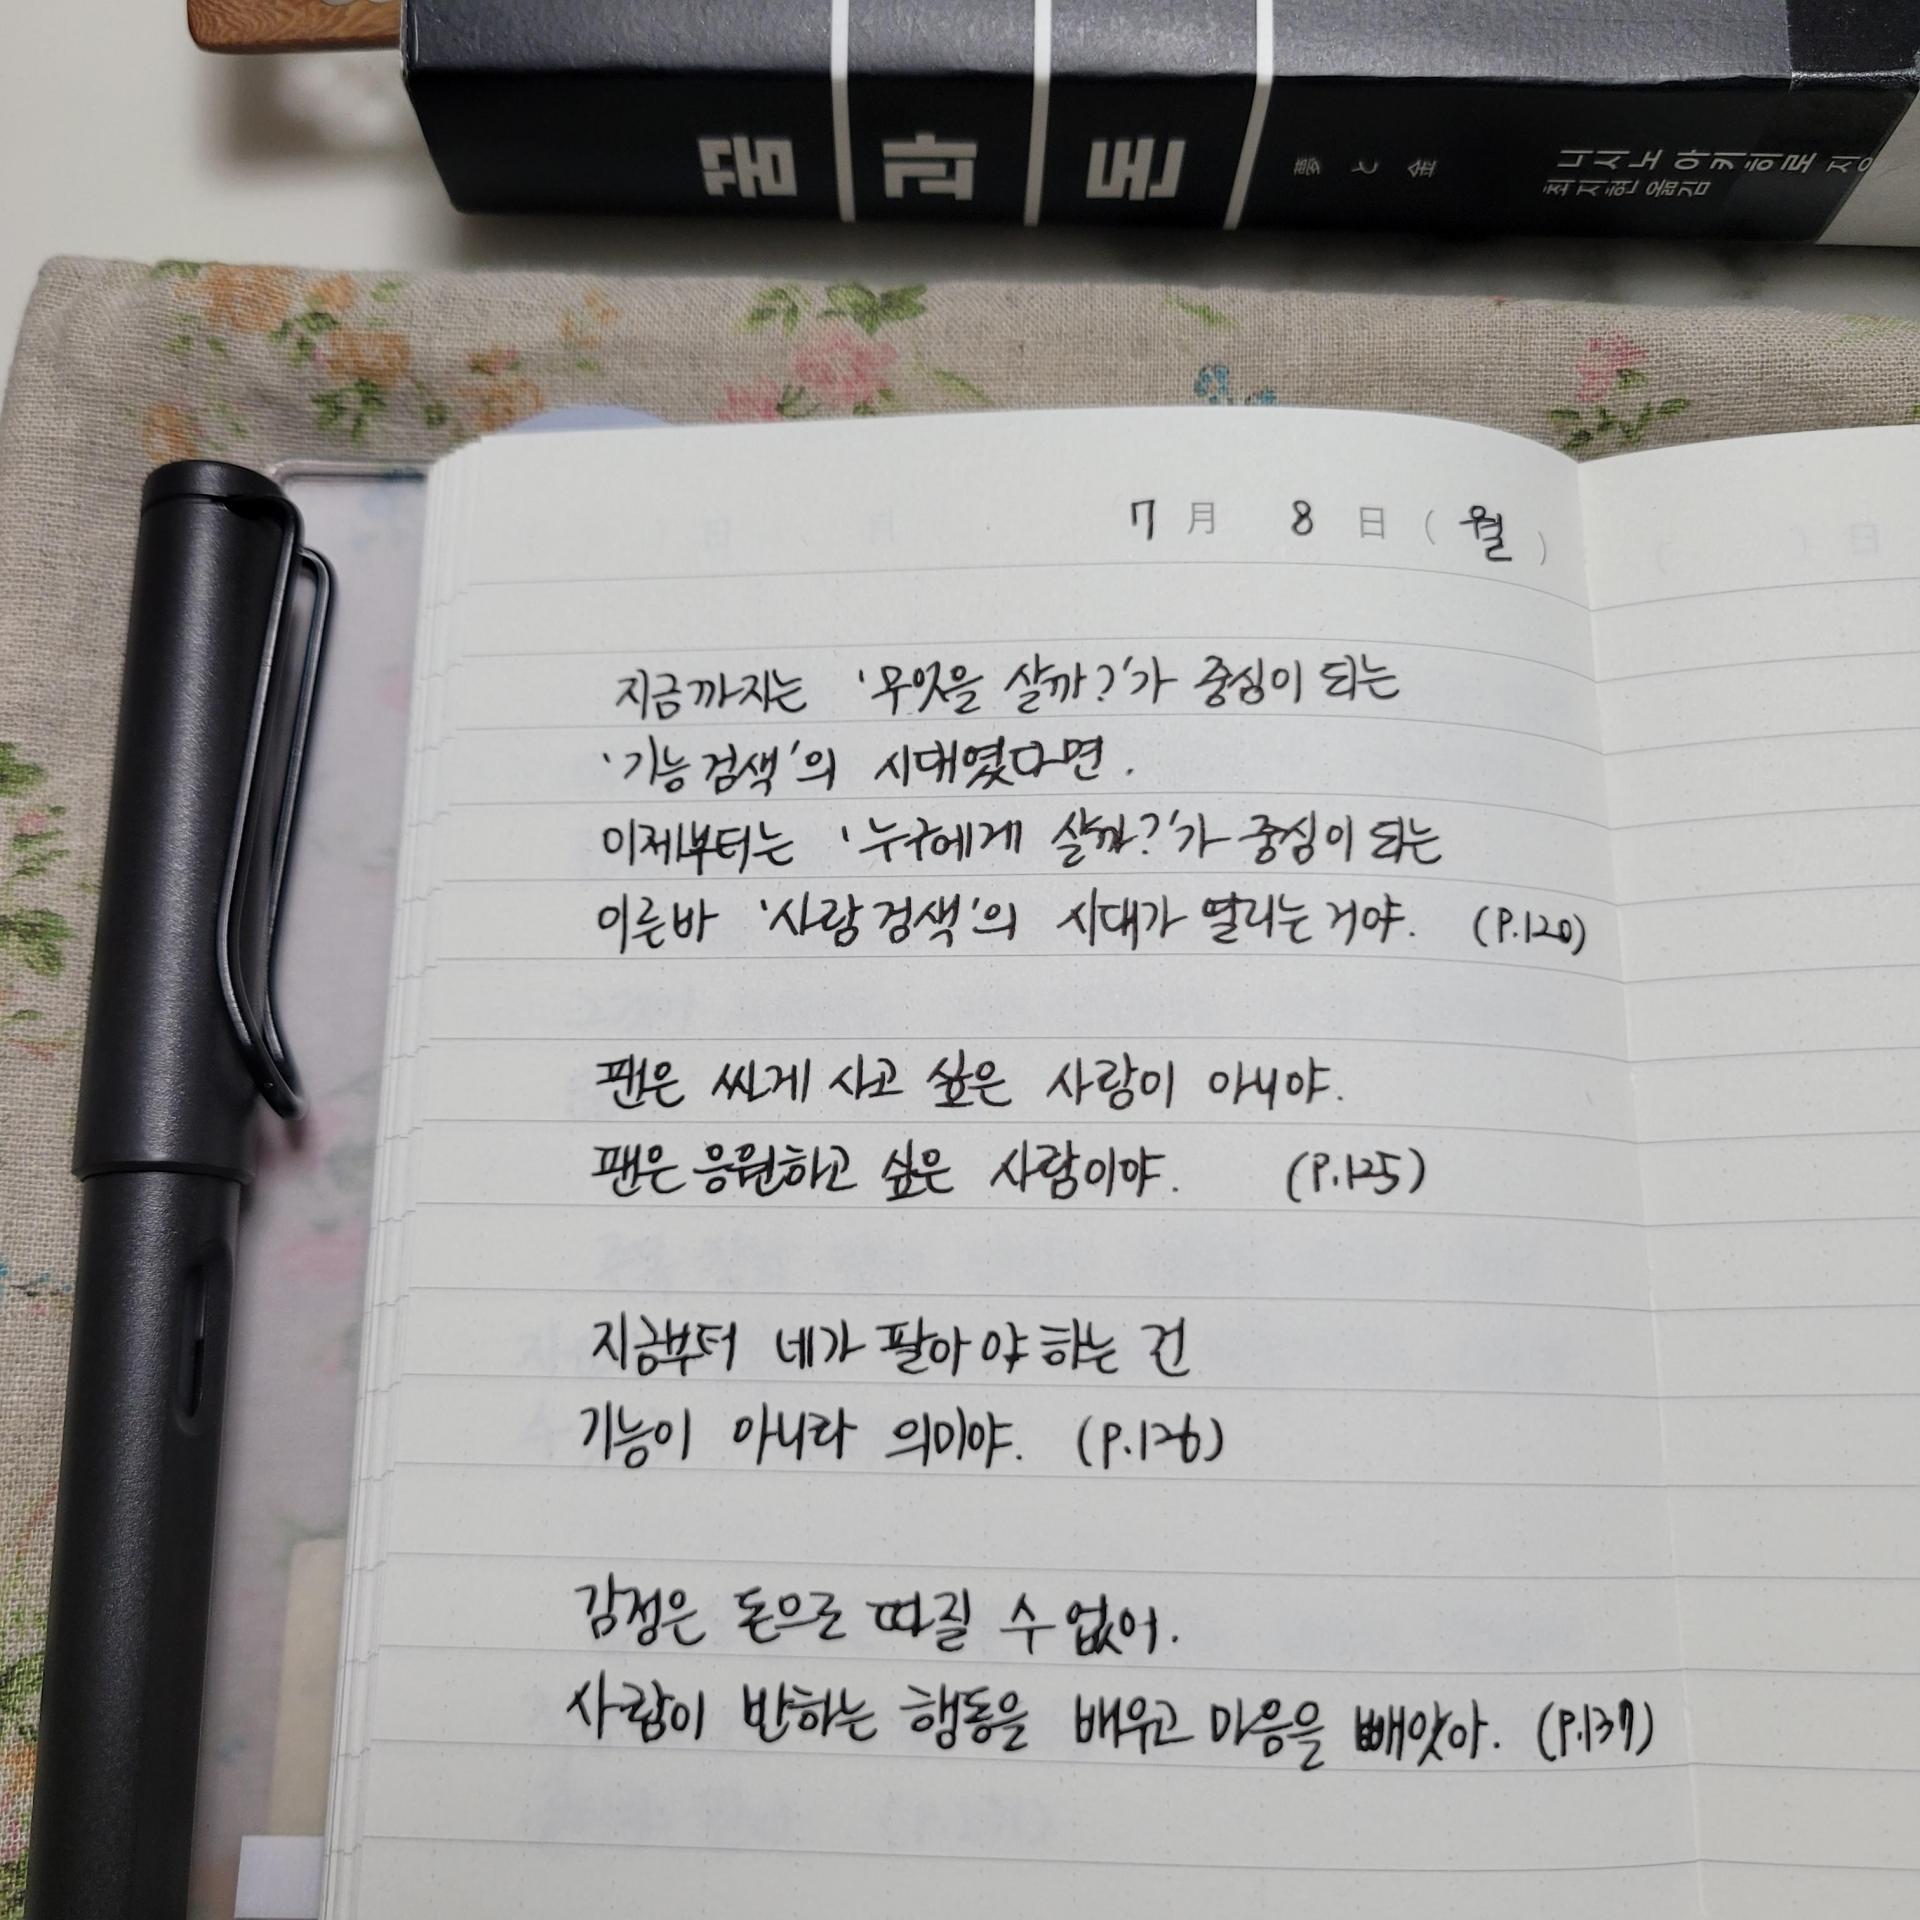 꿈과돈
夢と金
니시노 아키히로 지음
최지현 옮김
7月 8日(월)
지금까지는 '무엇을 살까?'가 중심이 되는
'기능검색'의 시대였다면.
이제부터는 '누구에게 살까?'가 중심이 되는
이른바 '사람검색'의 시대가 열리는거야. (P.120)
팬은 싸게 사고 싶은 사람이 아니야.
팬은 응원하고 싶은 사람이야. (P.125)
지금부터 네가 팔아야 하는 건
기능이 아니라 의미야. (P.126)
감정은 돈으로 따질 수 없어.
사람이 반하는 행동을 배우고 마음을 빼앗아. (P.137)